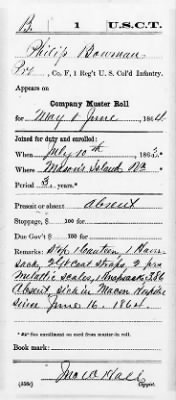 B. 1 U.S.C.T.
Philip Bowman
Pvt, Co. F, 1 Reg't U. S. Col'd Infantry.
Appears on
Company Muster Roll
for May & June, 1864.
Joined for duty and enrolled:
When July 10th, 1863.
Where Mason's Island
Period 3 years.*
Present or absent absent
Stoppage, $ 100 for
Due Gov't $ 100 for
Remarks: 1 Canteen, 1 Haver
sack, 2 straps, 2 prs
scales, 1
Absent, sick in Hospital
since June 16, 1864.
* See enrollment on card from muster-in roll.
Book mark:
(358c) Copyist.